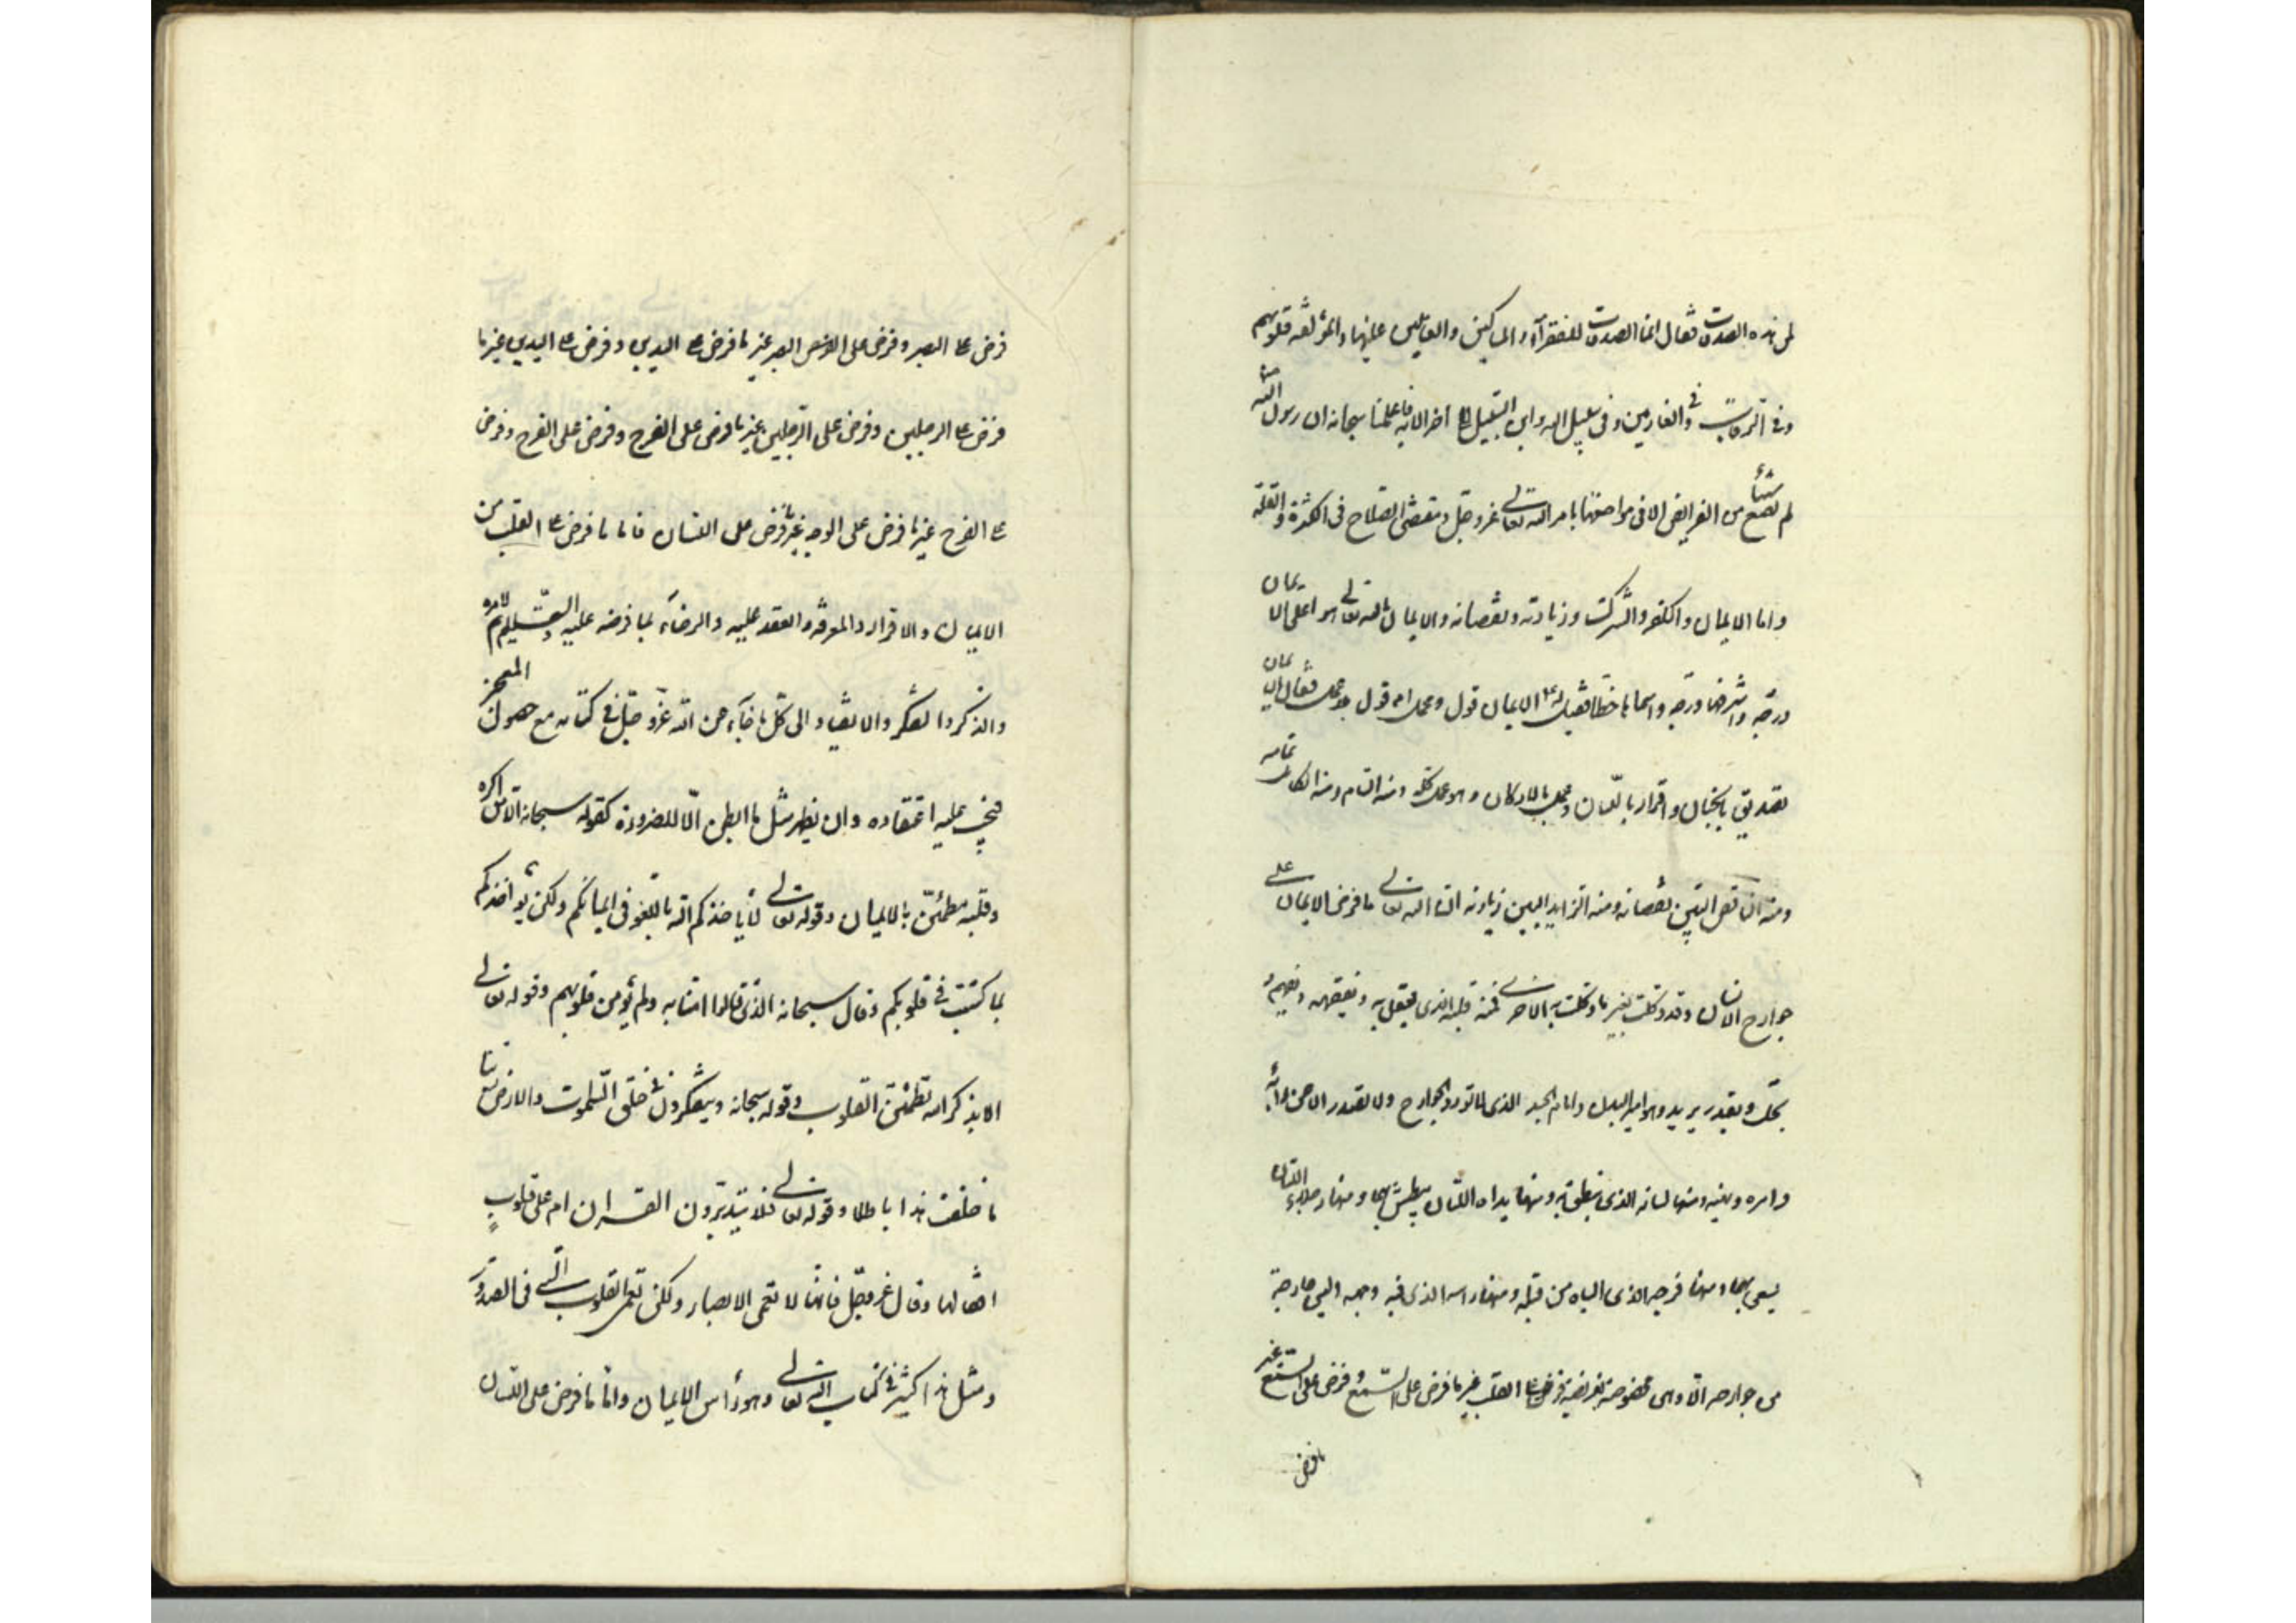 لمن هذه الصدقات فقال انما الصدقات للفقرآء والمساكين والعاملين عليها والمؤلفة قلوبهم
وفي الرقاب والغارمين وفي سبيل الله وابن السبيل الى اخر الاية فاعلمنا سبحانه ان رسول الله ص
لم يضع شيئا من الفرايض الا في مواضعها بامر الله تعالى عز وجل ومقتضى الصلاح في الكثرة والقلة
واما الايمان والكفر والشرك وزيادته ونقصانه والايمان بالله تعالى هو اعلى الايمان
درجة واشرفها درجة واسماها حظا فقيل له الايمان قول وعمل ام قول بلا عمل فقال الايمان
تصديق بالجنان واقرار باللسان وعمل بالاركان وهو عمل كله ومنه التام ومنه الكامل تمامه
ومنه الناقص البين نقصانه ومنه الزايد البين زيادته ان الله تعالى ما فرض الايمان على
جوارح الانسان وقد وكلت بغير ما وكلت به الاخرى فمنه قلبه الذي يعقل به ويفقه ويفهم و
يحل ويعقد ويريد وهو امير البدن وامام الجسد الذي لا تورد الجوارح ولا تصدر الا عن رأيه
وامره ونهيه ومنها لسانه الذي ينطق به ومنها يداه اللتان يبطش بهما ومنها رجلاه اللتان
يسعى بهما ومنها فرجه الذي الباه من قبله ومنها راسه الذي فيه وجهه وليس جارحة
من جوارحه الا وهي مخصوصة بفريضة وفرض على القلب غير ما فرض على السمع وفرض على السمع غير
ما فرض
فرض على البصر وفرض على البصر غير ما فرض على اليدين وفرض على اليدين غير ما
فرض على الرجلين وفرض على الرجلين غير ما فرض على الفرج وفرض على الفرج وفرض
على الفرج غير ما فرض على الوجه غير ما فرض على اللسان فاما ما فرض على القلب من
الايمان والاقرار والمعرفة والعقد عليه والرضآء بما فرضه عليه والتسليم لامره
والذكر والتفكر والانقياد الى كل ما جآء عن الله عز وجل في كتابه مع حصول المعجز
فيجب عليه اعتقاده وان يظهر مثل ما ابطن الّا للضرورة كقوله سبحانه الّا من اكره
وقلبه مطمئنّ بالايمان وقوله تعالى لا يؤاخذكم الله باللغو في ايمانكم ولكن يؤاخذكم
بما كسبت قلوبكم وقال سبحانه الذين قالوا امنا به ولم تؤمن قلوبهم وقوله تعالى
الا بذكر الله تطمئن القلوب وقوله سبحانه ويتفكرون في خلق السموت والارض ربنا
ما خلقت هذا باطلا وقوله تعالى افلا يتدبّرون القران ام على قلوبٍ
اقفالها وقال عز وجل فانها لا تعمى الابصار ولكن تعمى القلوب التي في الصدور
ومثل هذا كثير في كتاب الله تعالى وهو رأس الايمان وامّا ما فرض على اللسان